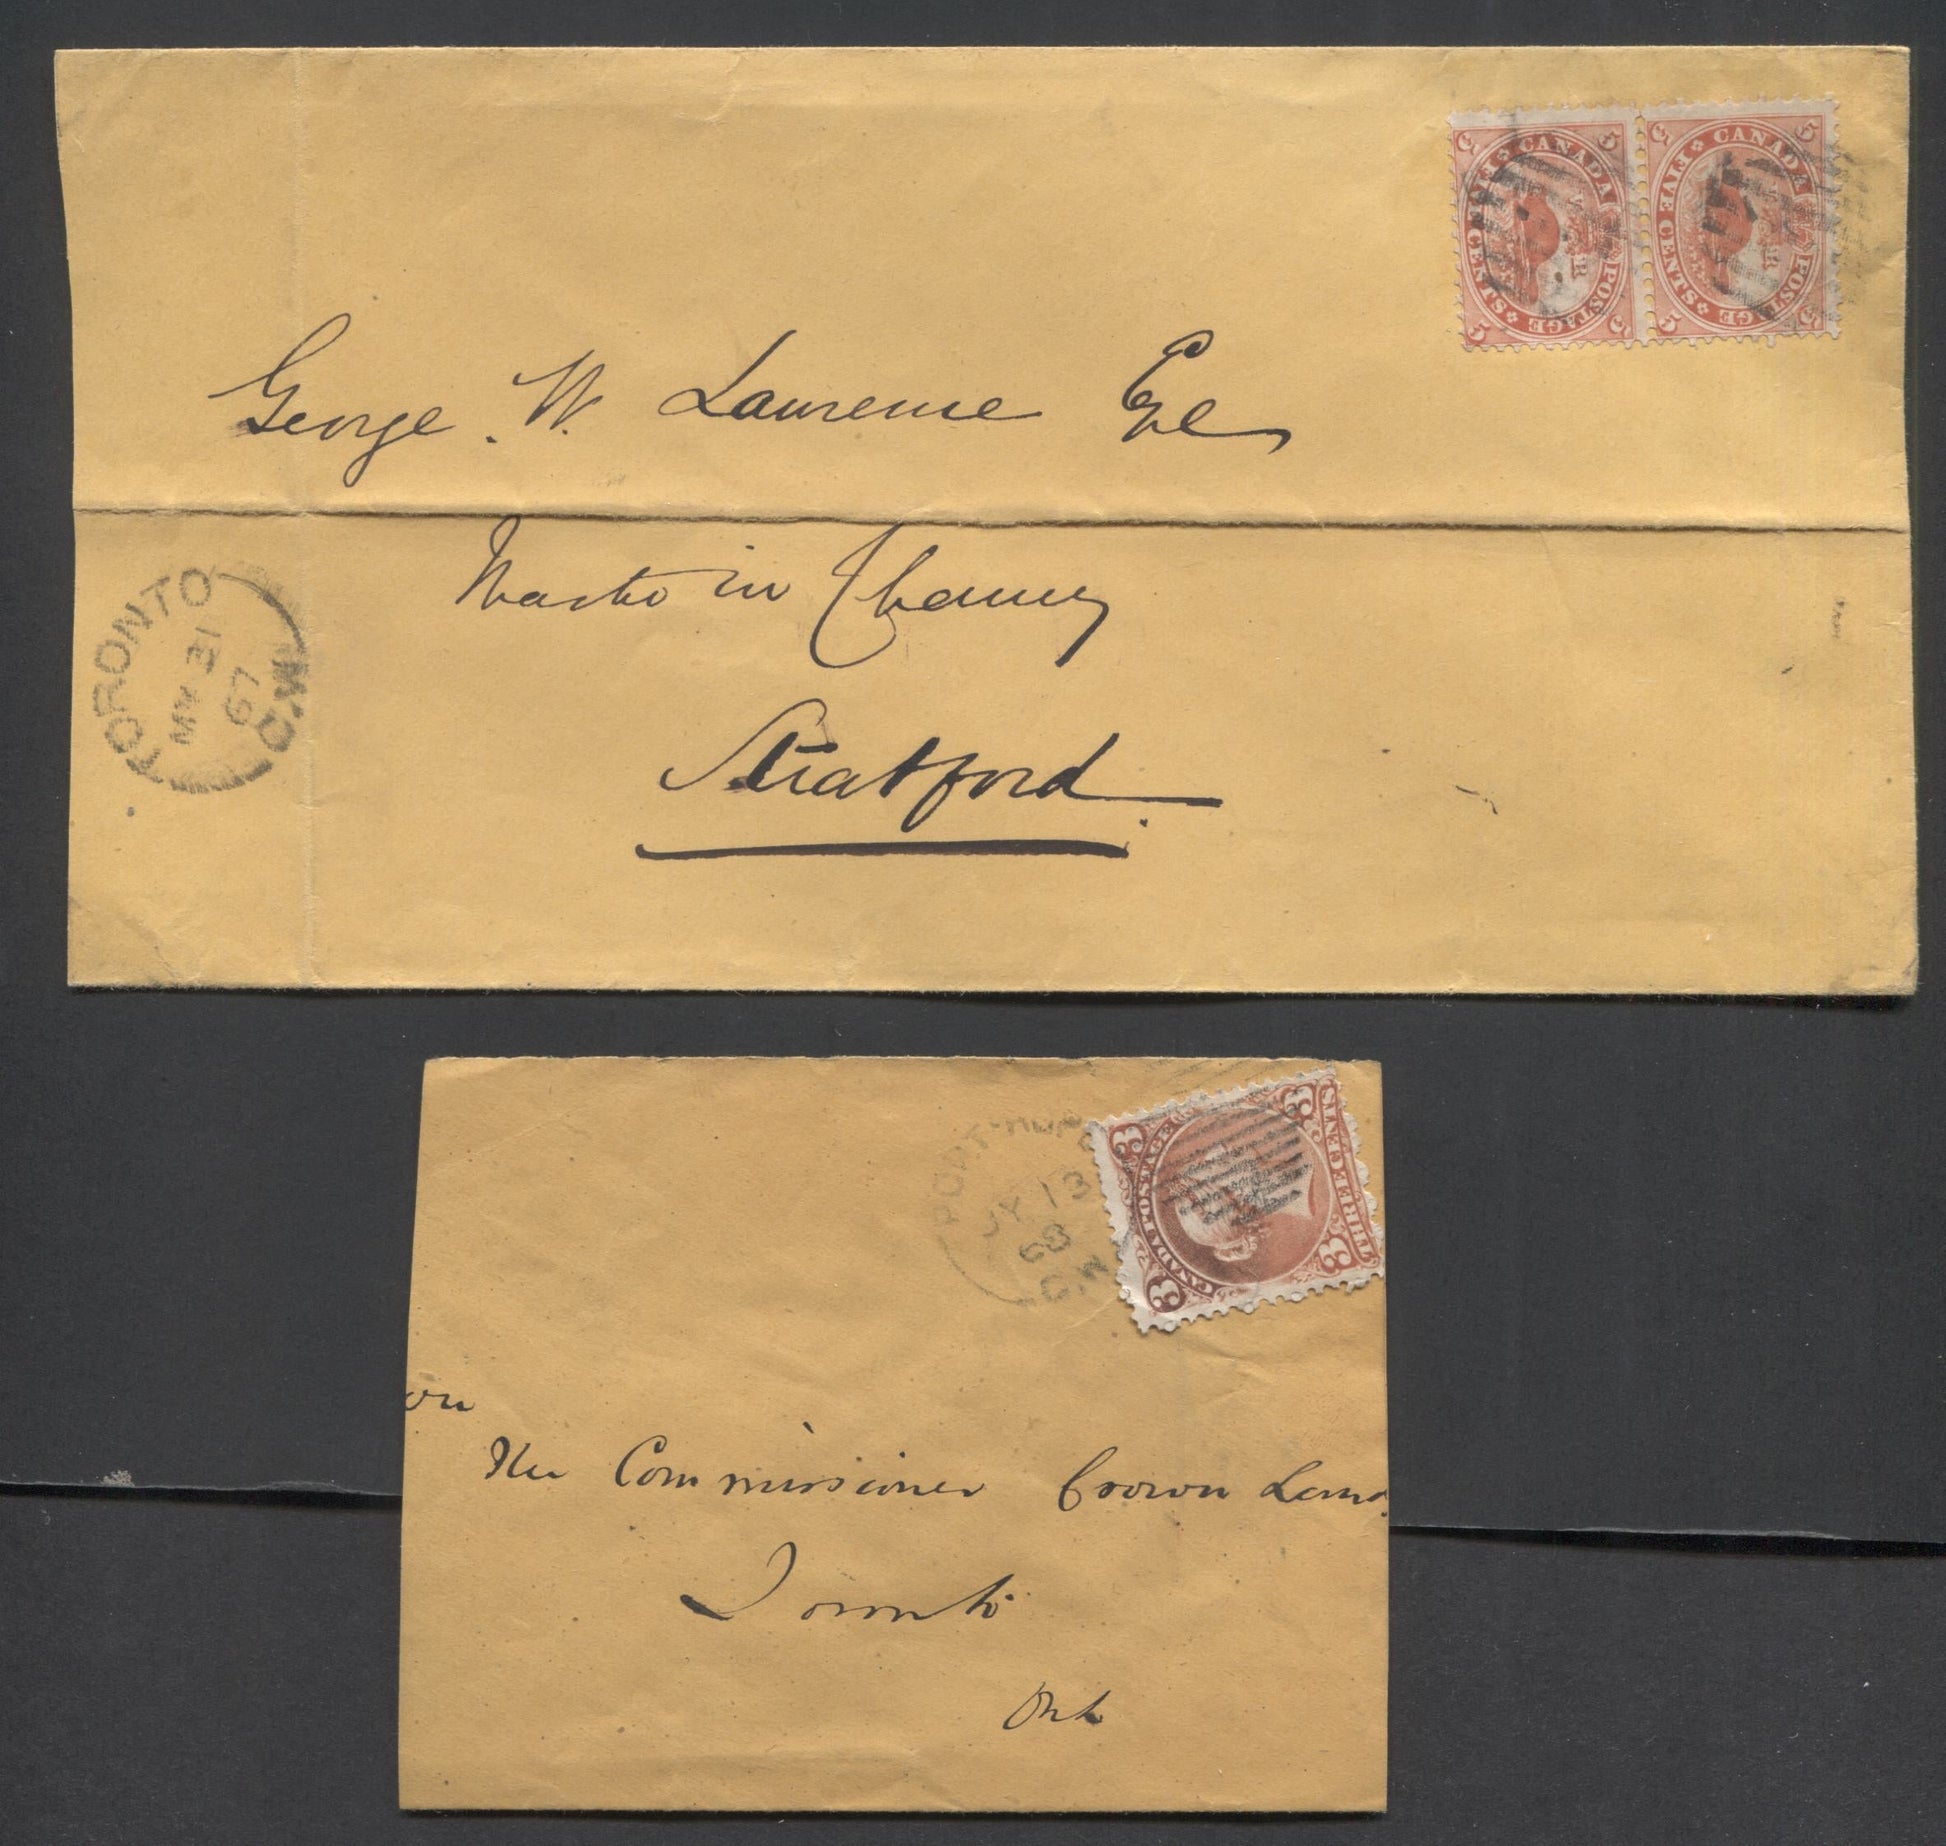 CANADA POSTAGE
FIVE CENTS
5 5 5 5
V R
CANADA POSTAGE
FIVE CENTS
5 5 5 5
V R
George. W. Lawrence Esq
Master in Chancery
Stratford
TORONTO
MY 31
67
C.W
PORT-HOPE
JY 13
68
C.W
CANADA POSTAGE
THREE CENTS
3 3 3 3
on
The Commissioner Crown Land
Toronto
Ont